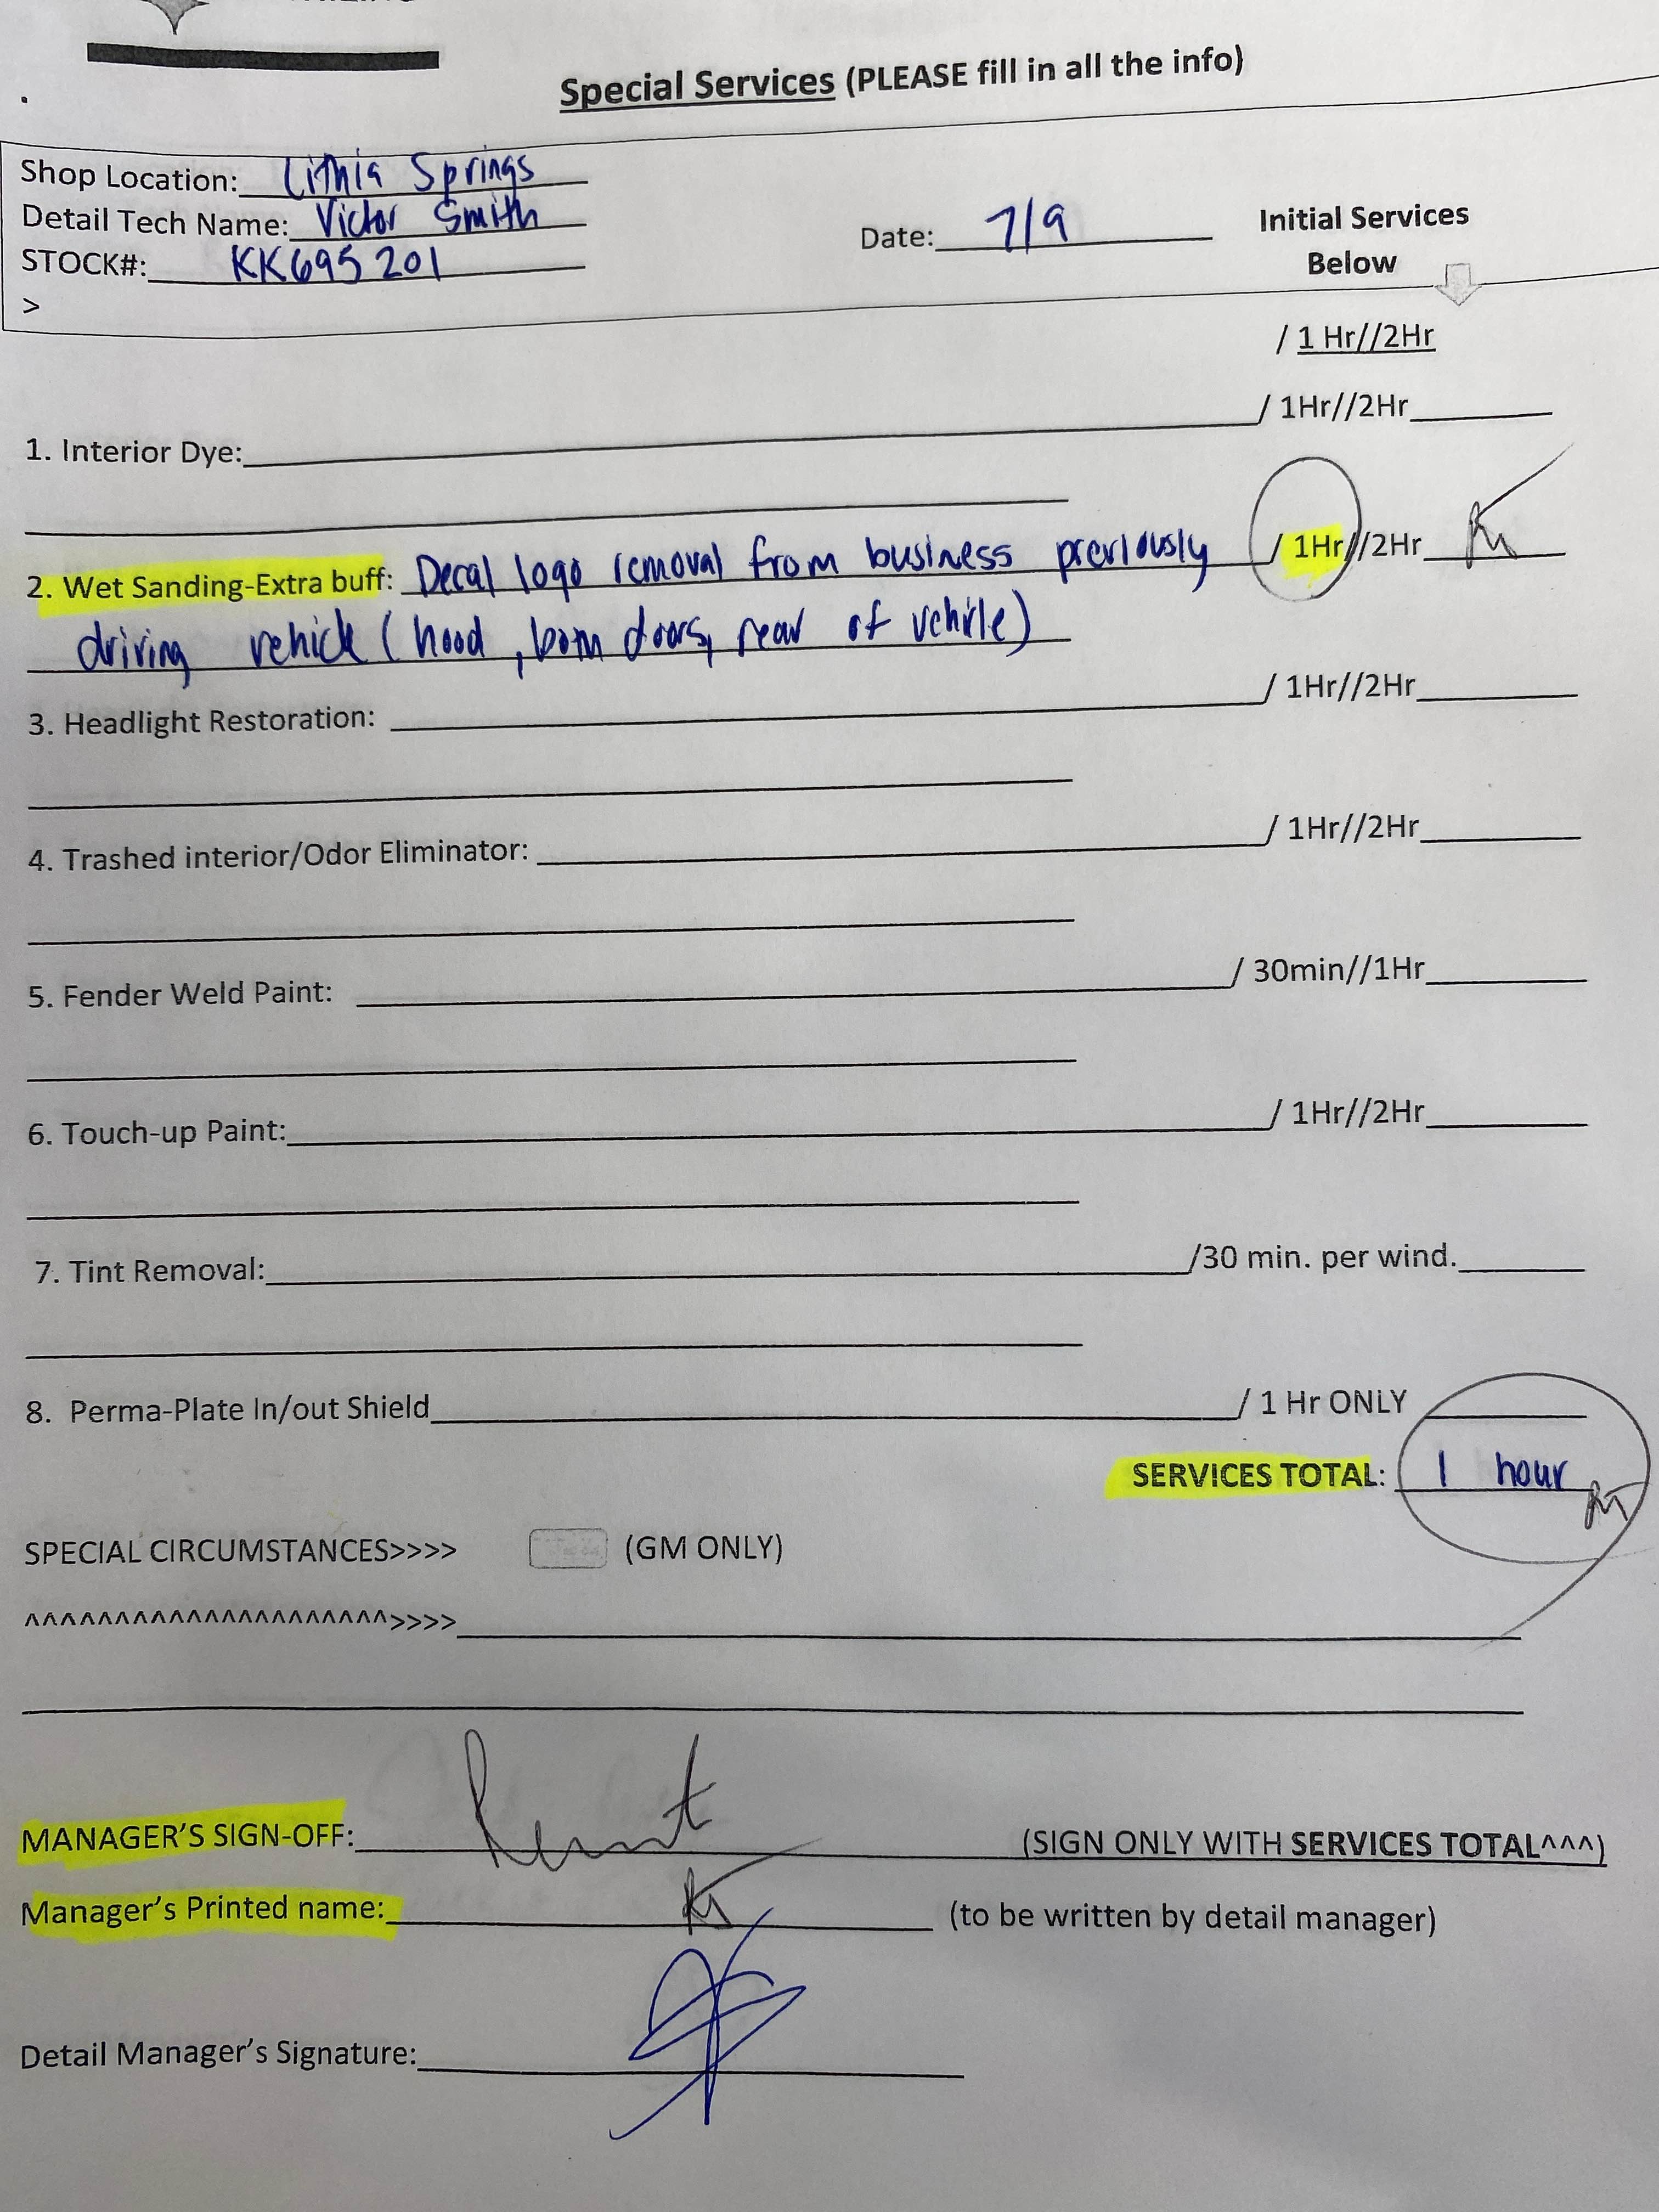 Special Services (PLEASE fill in all the info)
Shop Location: Lithia Springs
Detail Tech Name: Victor Smith
STOCK#: KK695201
>
Date: 7/9
Initial Services
Below
/ 1 Hr//2Hr
1. Interior Dye: / 1Hr//2Hr
2. Wet Sanding-Extra buff: Decal logo removal from business previously / 1Hr//2Hr
driving vehicle (hood, both doors, rear of vehicle)
3. Headlight Restoration: / 1Hr//2Hr
4. Trashed interior/Odor Eliminator: / 1Hr//2Hr
5. Fender Weld Paint: / 30min//1Hr
6. Touch-up Paint: / 1Hr//2Hr
7. Tint Removal: /30 min. per wind.
8. Perma-Plate In/out Shield / 1 Hr ONLY
SERVICES TOTAL: 1 hour
SPECIAL CIRCUMSTANCES>>>> (GM ONLY)
^^^^^^^^^^^^^^^^^^^^^>>>>
MANAGER'S SIGN-OFF: (SIGN ONLY WITH SERVICES TOTAL^^^)
Manager's Printed name: (to be written by detail manager)
Detail Manager's Signature: